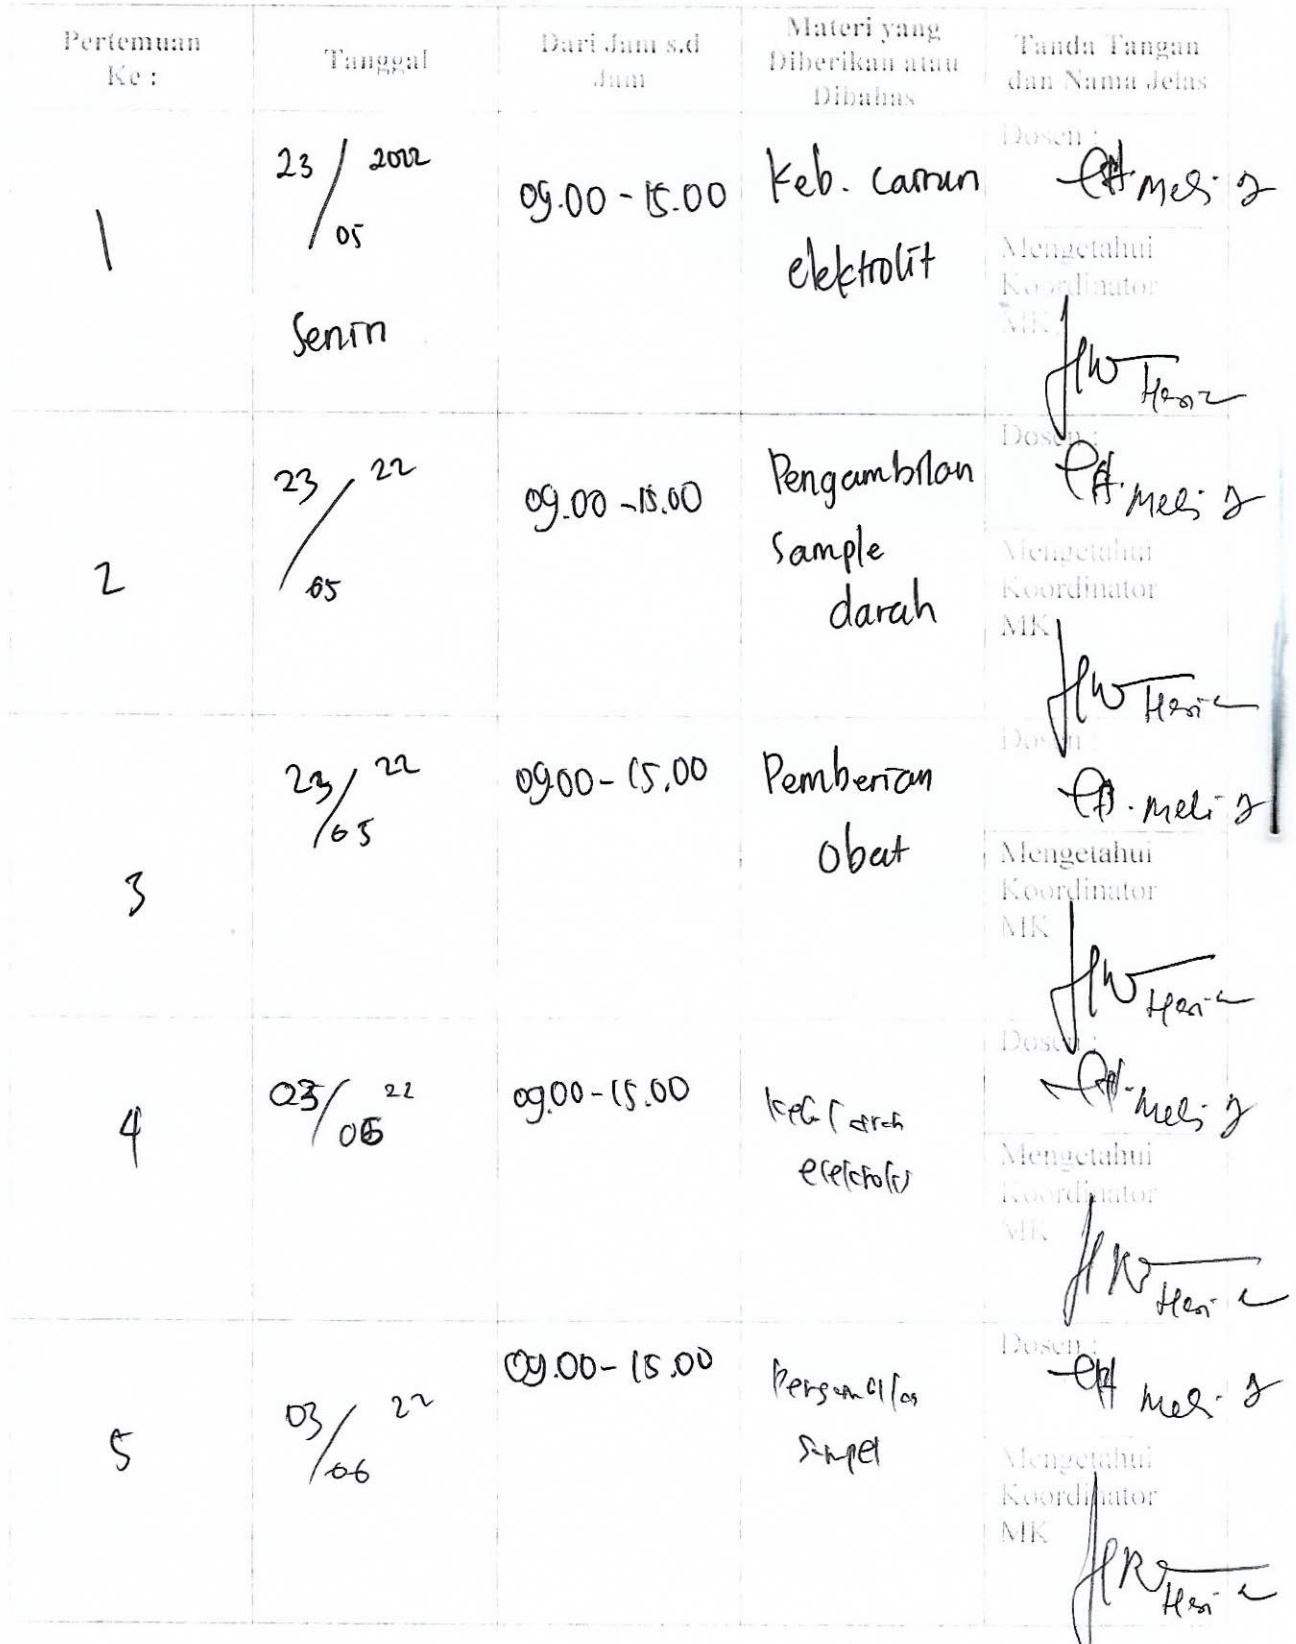 Pertemuan
Ke :
Tanggal
Dari Jam s.d
Jam
Materi yang
Diberikan atau
Dibahas
Tanda Tangan
dan Nama Jelas
1
23/05 2022
Senin
09.00 - 15.00
Keb. cairan
elektrolit
Dosen :
Meli
Mengetahui
Koordinator
MK
2
23/05 22
09.00 - 15.00
Pengambilan
Sample
darah
Dosen :
Meli
Mengetahui
Koordinator
MK
3
23/05 22
09.00 - 15.00
Pemberian
Obat
Dosen :
Meli
Mengetahui
Koordinator
MK
4
03/06 22
09.00 - 15.00
Dosen :
Meli
Mengetahui
Koordinator
MK
5
03/06 22
09.00 - 15.00
Dosen :
Meli
Mengetahui
Koordinator
MK